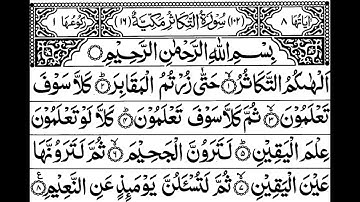 اٰیَاتُهَا ٨ (١٠٢) سُوْرَةُ التَّكَاثُرِ مَكِّیَّةٌ (١٦) رُكُوْعُهَا ١
بِسْمِ اللّٰهِ الرَّحْمٰنِ الرَّحِیْمِ
اَلْهٰىكُمُ التَّكَاثُرُ ۙ١ حَتّٰی زُرْتُمُ الْمَقَابِرَ ؕ٢ كَلَّا سَوْفَ
تَعْلَمُوْنَ ۙ٣ ثُمَّ كَلَّا سَوْفَ تَعْلَمُوْنَ ؕ٤ كَلَّا لَوْ تَعْلَمُوْنَ
عِلْمَ الْیَقِیْنِ ؕ٥ لَتَرَوُنَّ الْجَحِیْمَ ۙ٦ ثُمَّ لَتَرَوُنَّهَا
عَیْنَ الْیَقِیْنِ ۙ٧ ثُمَّ لَتُسْـَٔلُنَّ یَوْمَىِٕذٍ عَنِ النَّعِیْمِ ٨